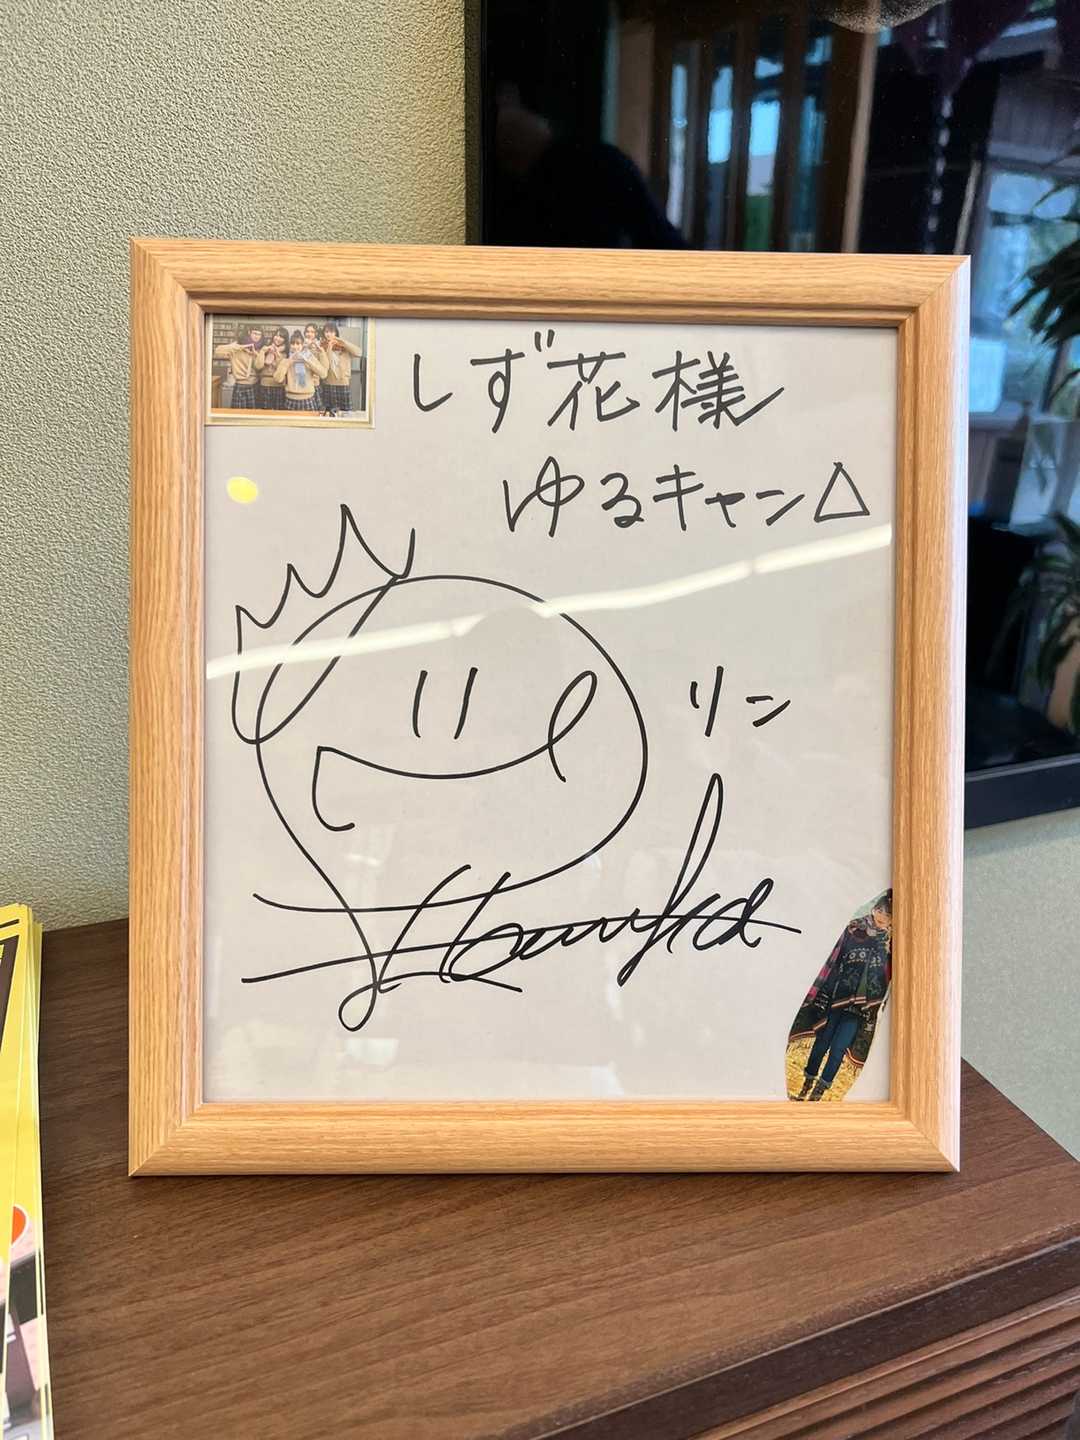 しず花様
ゆるキャン△
リン
Haruka